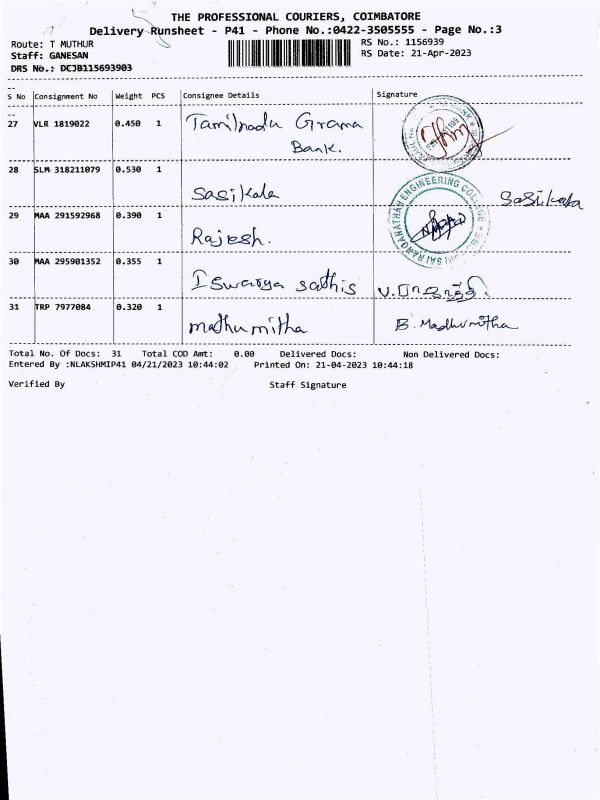 THE PROFESSIONAL COURIERS, COIMBATORE
Delivery Runsheet - P41 - Phone No.:0422-3505555 - Page No.:3
Route: T MUTHUR
RS No.: 1156939
Staff: GANESAN
RS Date: 21-Apr-2023
DRS No.: DCJB115693903
S No Consignment No Weight PCS Consignee Details Signature
27 VLR 1819022 0.450 1 Tamilnadu Grama
Bank.
28 SLM 318211079 0.530 1
Sasikala Sasikala
29 MAA 291592968 0.390 1
Rajesh.
ENGINEERING COLLEGE
30 MAA 295901352 0.355 1
Iswarya sathis
31 TRP 7977084 0.320 1
mathumitha B. Madhumitha
Total No. Of Docs: 31 Total COD Amt: 0.00 Delivered Docs: Non Delivered Docs:
Entered By :NLAKSHMIP41 04/21/2023 10:44:02 Printed On: 21-04-2023 10:44:18
Verified By Staff Signature